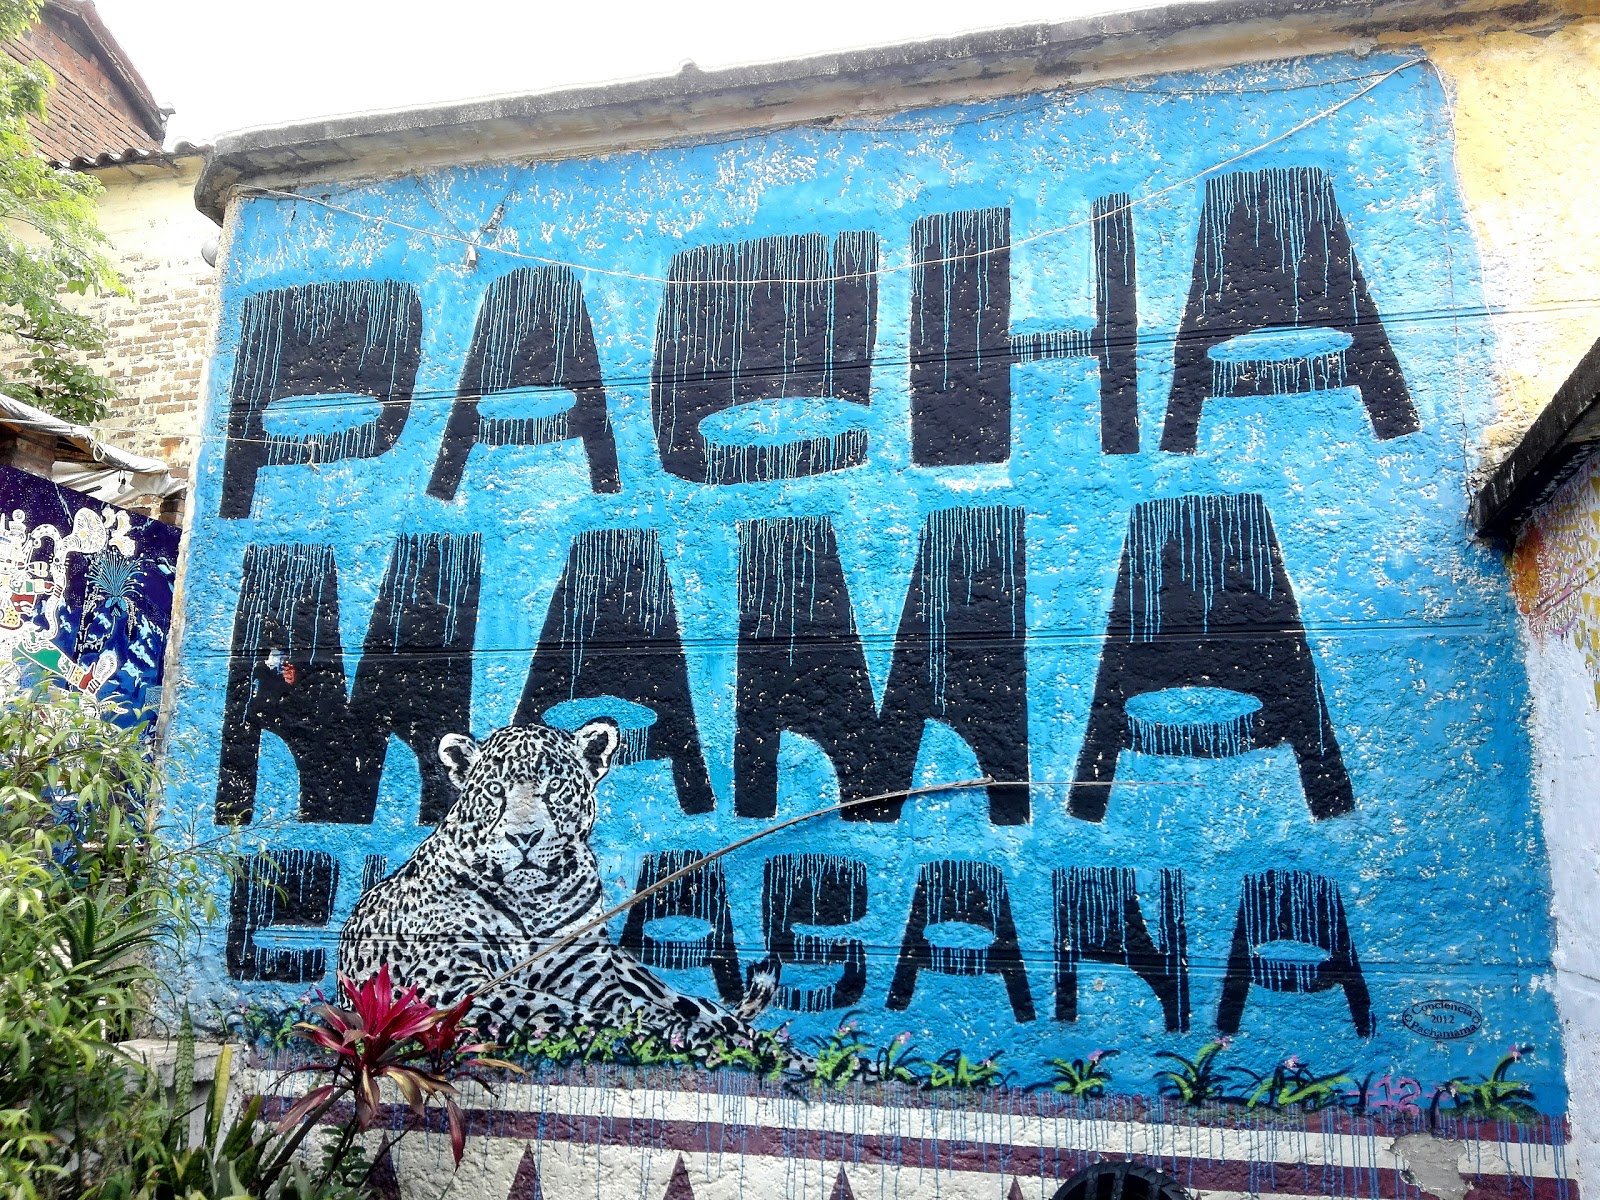 PACHA
MAMA
Conciencia
2012
Pachamama
12